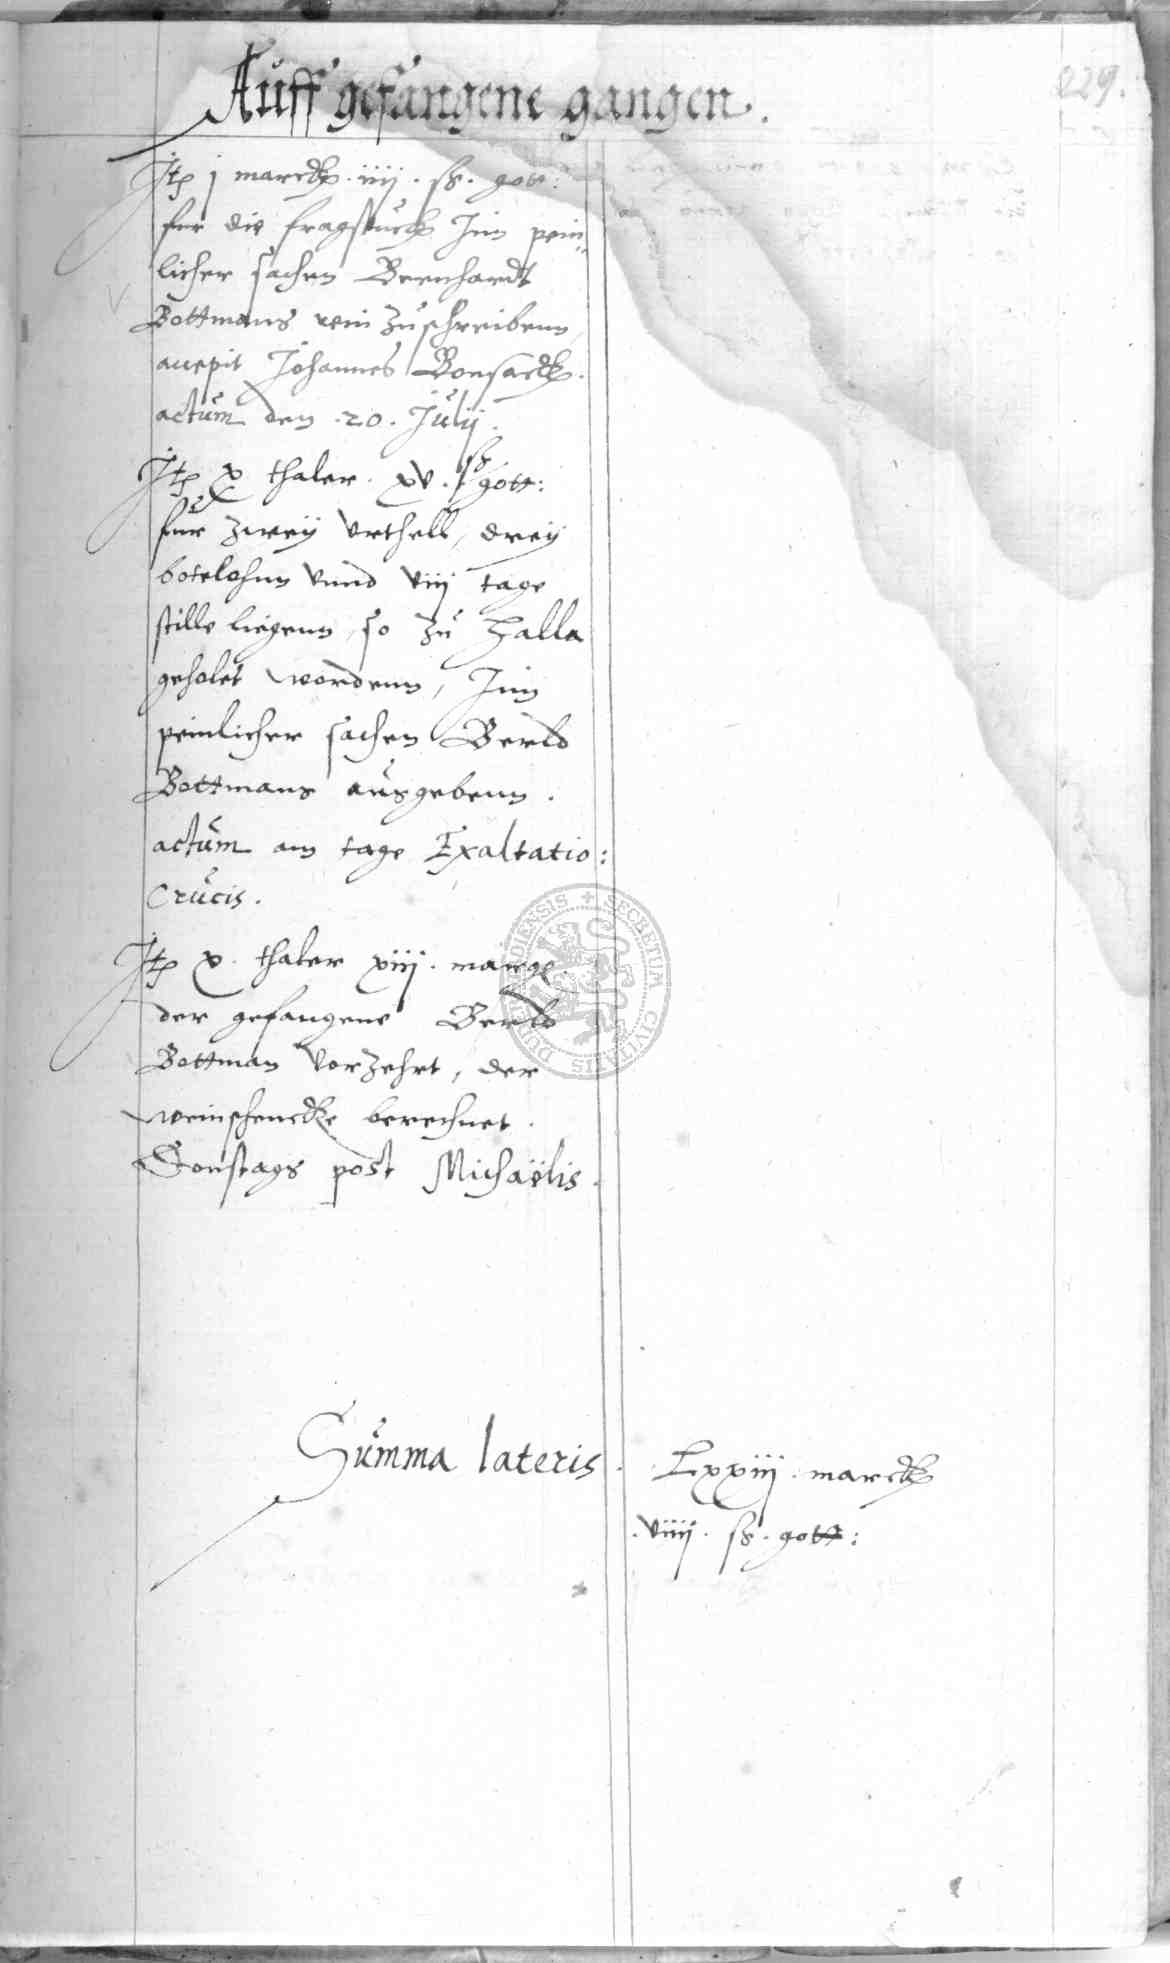 Auff gefangene gangen.
229.
Jtem j marck. iiij. ß. gott:
fur die fragstuck Jnn pein-
licher sachen Bernhardt
Bottmans rein zuschreibenn,
accepit Johannes Bonsack.
actum den .20. Julij.
Jtem x thaler. xv. ß gott:
fur zweij Vrthell, dreij
botelohnn Vnnd viij tage
stille liegenn, so zu Halla
geholet wordenn, Jnn
peinlicher sachen Berld
Bottmans ausgebenn.
actum am tage Exaltatio:
Crucis.
Jtem v. thaler xiij. marge.
der gefangene Berld
Bottman Vorzehrt, der
weinschencke berechnet.
Donstags post Michaëlis.
DUDERSTADIENSIS + SECRETUM CIVITATIS
Summa lateris. Lxxiij. marck
.viiij. ß. gott: